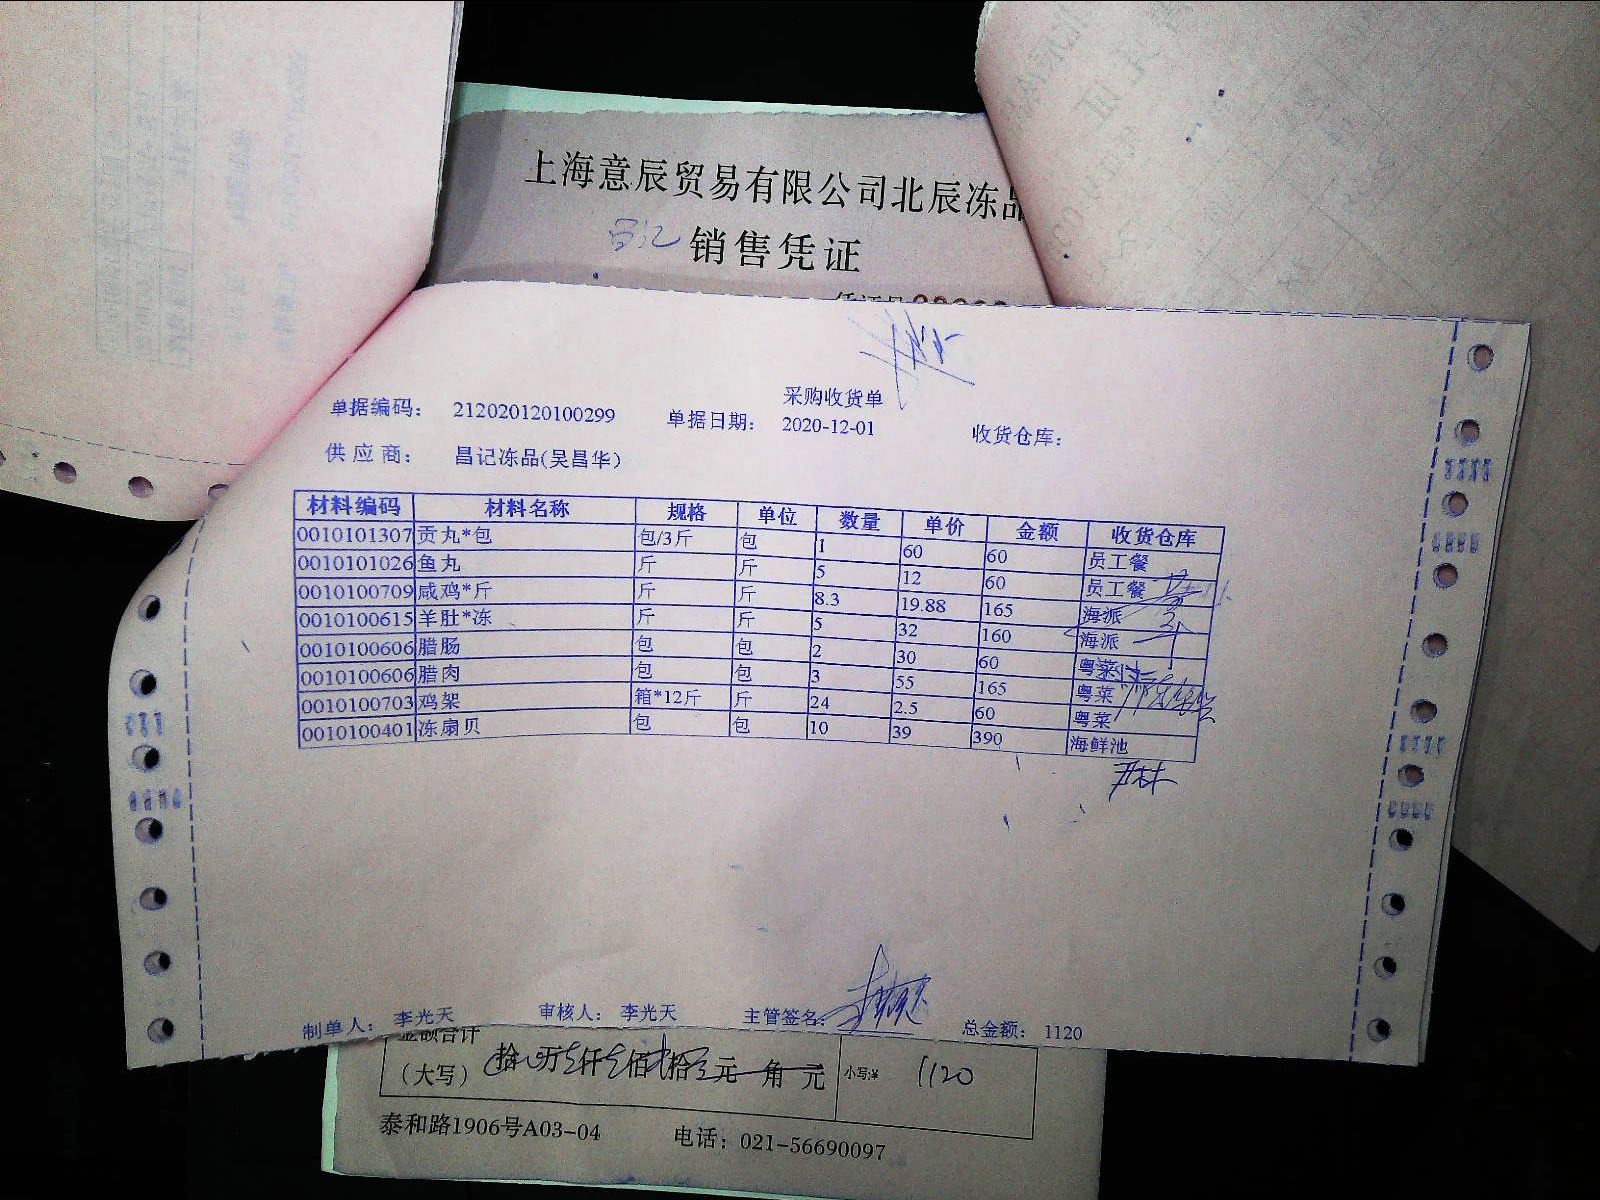 上海意辰贸易有限公司北辰冻品
昌记 销售凭证
凭证号
采购收货单
单据编码： 212020120100299 单据日期： 2020-12-01 收货仓库：
供应商： 昌记冻品(吴昌华)
材料编码 材料名称 规格 单位 数量 单价 金额 收货仓库
0010101307 贡丸*包 包/3斤 包 1 60 60 员工餐
0010101026 鱼丸 斤 斤 5 12 60 员工餐
0010100709 咸鸡*斤 斤 斤 8.3 19.88 165 海派
0010100615 羊肚*冻 斤 斤 5 32 160 海派
0010100606 腊肠 包 包 2 30 60 粤菜
0010100606 腊肉 包 包 3 55 165 粤菜
0010100703 鸡架 箱*12斤 斤 24 2.5 60 粤菜
0010100401 冻扇贝 包 包 10 39 390 海鲜池
制单人： 李光天 审核人： 李光天 主管签名： 总金额： 1120
金额合计
（大写） 拾 万 仟 佰 拾 元 角 元 小写:¥ 1120
泰和路1906号A03-04 电话：021-56690097